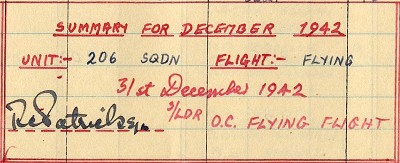 SUMMARY FOR DECEMBER 1942
UNIT:- 206 SQDN FLIGHT:- FLYING
31st December 1942
S/LDR O.C. FLYING FLIGHT